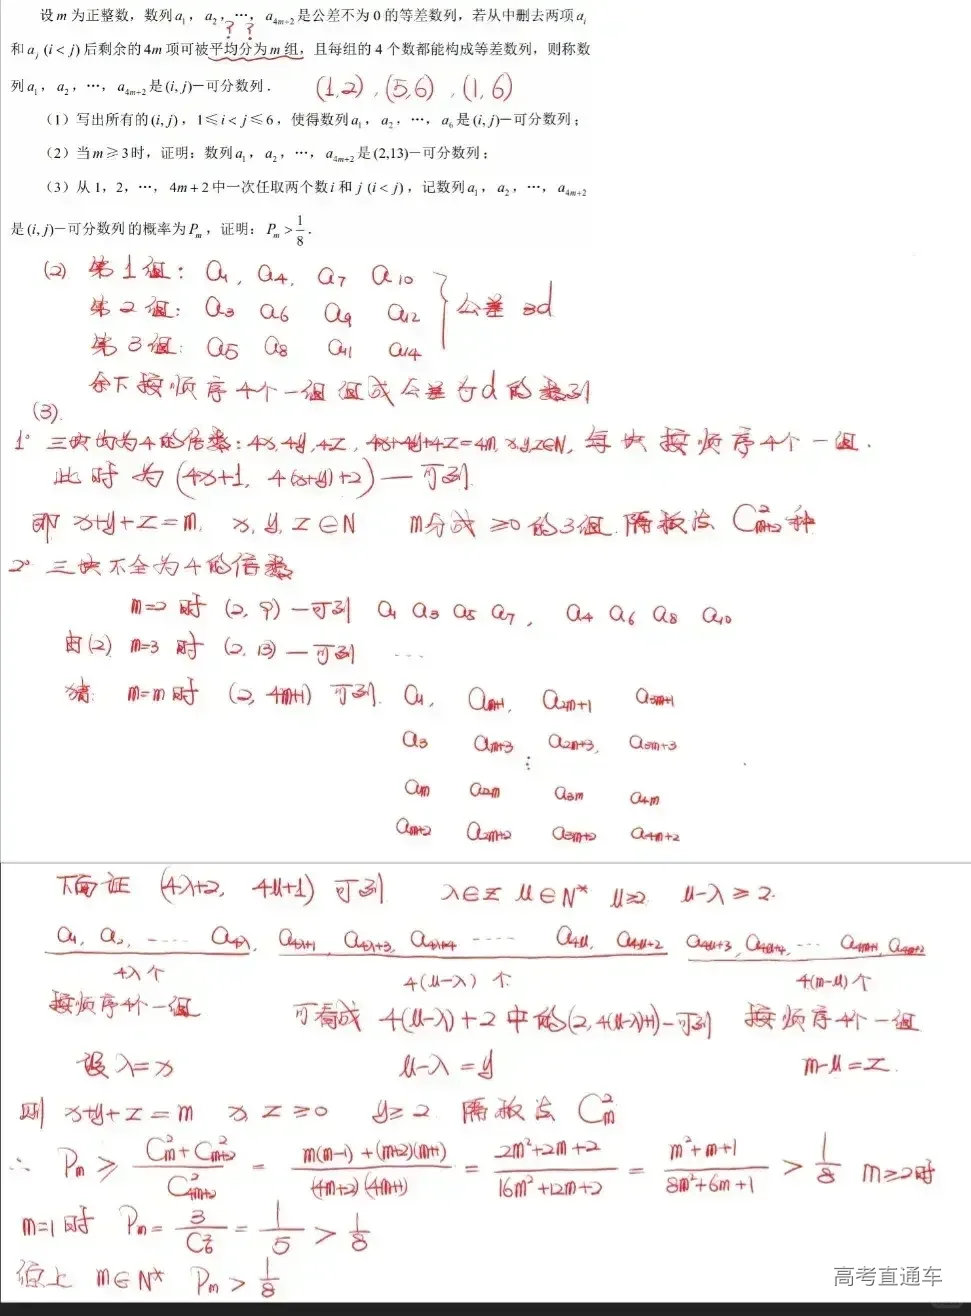 设m为正整数，数列a₁，a₂，…，a₄ₘ₊₂是公差不为0的等差数列，若从中删去两项aᵢ
? ?
和aⱼ (i < j)后剩余的4m项可被平均分为m组，且每组的4个数都能构成等差数列，则称数
列a₁，a₂，…，a₄ₘ₊₂是(i, j)－可分数列．
(1,2)，(5,6)，(1,6)
（1）写出所有的(i, j)，1≤i < j≤6，使得数列a₁，a₂，…，a₆是(i, j)－可分数列；
（2）当m≥3时，证明：数列a₁，a₂，…，a₄ₘ₊₂是(2,13)－可分数列；
（3）从1，2，…，4m+2中一次任取两个数i和j (i < j)，记数列a₁，a₂，…，a₄ₘ₊₂
是(i, j)－可分数列的概率为Pₘ，证明：Pₘ > 1/8．
(2) 第1组：a₁，a₄，a₇ a₁₀
第2组：a₃ a₆ a₉ a₁₂ } 公差3d
第3组：a₅ a₈ a₁₁ a₁₄
余下按顺序4个一组组成公差为d的数列
(3).
1° 三块均为4的倍数：4x,4y,4z，4x+4y+4z=4m, x,y,z∈N，每块按顺序4个一组．
此时为(4x+1, 4(x+y)+2)—可列
即 x+y+z=m, x, y, z∈N m分成≥0的3组 隔板法 C²ₘ₊₂种
2° 三块不全为4的倍数
m=2时 (2, 9)—可列 a₁ a₃ a₅ a₇， a₄ a₆ a₈ a₁₀
由(2) m=3时 (2, 13)—可列 ····
猜：m=m时 (2, 4m+1) 可列. a₁, aₘ₊₁, a₂ₘ₊₁ a₃ₘ₊₁
a₃ aₘ₊₃ a₂ₘ₊₃, a₃ₘ₊₃
⋮
aₘ a₂ₘ a₃ₘ a₄ₘ
aₘ₊₂ a₂ₘ₊₂ a₃ₘ₊₂ a₄ₘ₊₂
下面证 (4λ+2, 4μ+1) 可列 λ∈Z μ∈N* μ≥2 μ-λ≥2.
a₁, a₂, ····· a₄λ, a₄λ₊₁, a₄λ₊₃, a₄λ₊₄ ····· a₄μ, a₄μ₊₂ a₄μ₊₃, a₄μ₊₄, ··· a₄ₘ₊₁, a₄ₘ₊₂
4λ个 4(μ-λ)个 4(m-μ)个
按顺序4个一组 可看成4(μ-λ)+2中的(2, 4(μ-λ)+1)-可列 按顺序4个一组
设λ=x μ-λ=y m-μ=z
则 x+y+z=m x, z≥0 y≥2 隔板法 C²ₘ
∴ Pₘ ≥ (C²ₘ+C²ₘ₊₂)/C²₄ₘ₊₂ = (m(m-1)+(m+2)(m+1))/((4m+2)(4m+1)) = (2m²+2m+2)/(16m²+12m+2) = (m²+m+1)/(8m²+6m+1) > 1/8 m≥2时
m=1时 Pₘ = 3/C²₆ = 1/5 > 1/8
综上 m∈N* Pₘ > 1/8
高考直通车